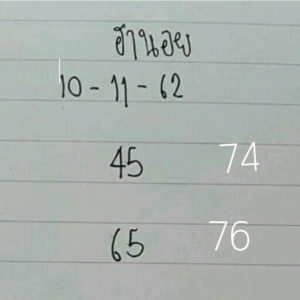 ฮานอย
10-11-62
45 74
65 76